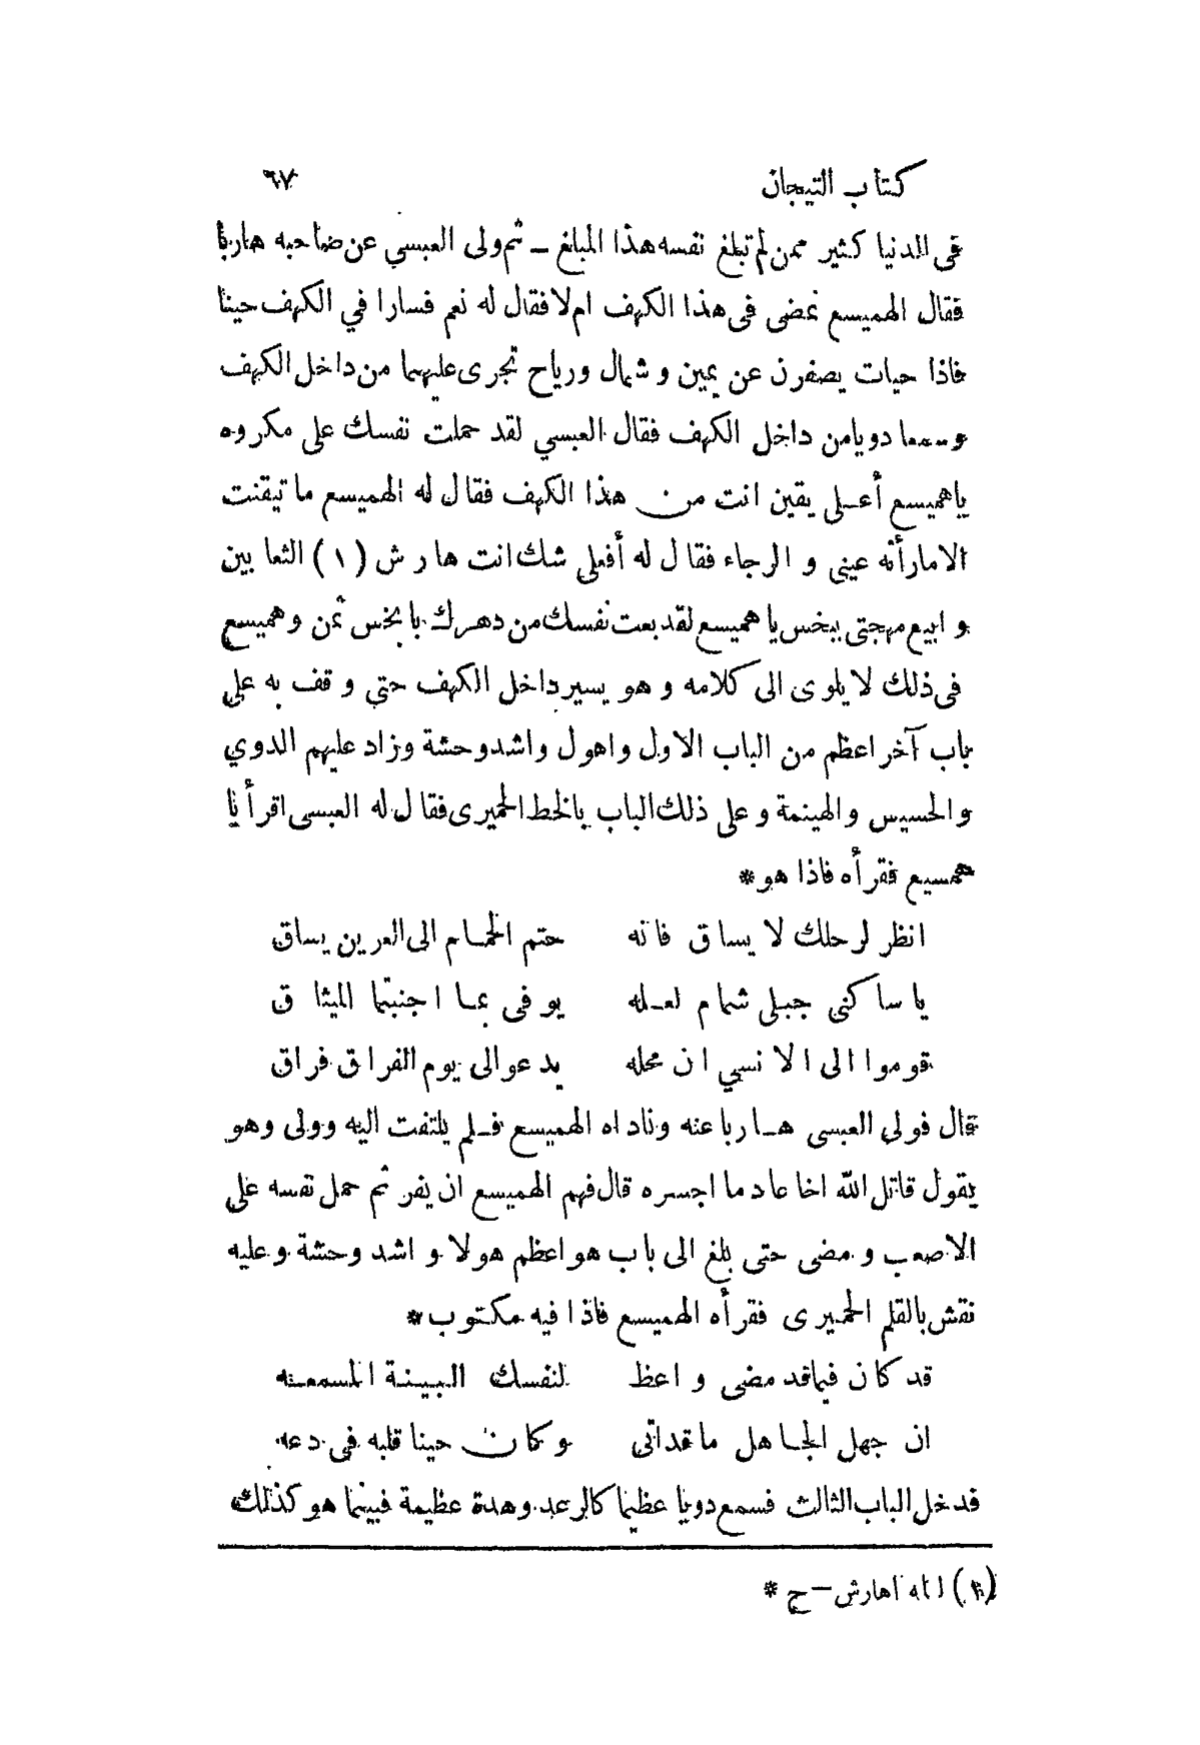 كتاب التيجان ٦٧
فى الدنيا كثير ممن لم تبلغ نفسه هذا المبلغ ـ ثم ولى العبسي عن صاحبه هاربا
فقال الهميسع نمضى فى هذا الكهف ام لا فقال له نعم فسارا في الكهف حينا
فاذا حيات يصفرن عن يمين وشمال ورياح تجرى عليهما من داخل الكهف
وسمعا دويا من داخل الكهف فقال العبسي لقد حملت نفسك على مكروه
يا هميسع أعلى يقين انت من هذا الكهف فقال له الهميسع ما تيقنت
الا ما رأته عينى و الرجاء فقال له أفعلى شك انت هارش (١) الثعابين
و ابيع مهجتى ببخس يا هميسع لقد بعت نفسك من دهرك بابخس ثمن وهميسع
فى ذلك لا يلوى الى كلامه وهو يسير داخل الكهف حتي وقف به على
باب آخر اعظم من الباب الاول واهول واشدوحشة وزاد عليهم الدوي
والحسيس والهينمة وعلى ذلك الباب بالخط الحميرى فقال له العبسى اقرأ يا
همسيع فقرأه فاذا هو *
انظر لرحلك لا يساق فانه حتم الحمام الى العرين يساق
يا ساكنى جبلى شمام لعله يوفى بما اجنبتما الميثاق
قوموا الى الانسي ان محله يدعو الى يوم الفراق فراق
قال فولي العبسى هاربا عنه وناداه الهميسع فلم يلتفت اليه وولى وهو
يقول قاتل الله اخا عاد ما اجسره قال فهم الهميسع ان يفر ثم حمل نفسه على
الاصعب ومضى حتى بلغ الى باب هو اعظم هولا و اشد وحشة وعليه
نقش بالقلم الحميرى فقرأه الهميسع فاذا فيه مكتوب *
قد كان فيما قد مضى واعظ لنفسك البينة المسمعه
ان جهل الجاهل ما قداتى وكان حينا قلبه فى دعه
فدخل الباب الثالث فسمع دويا عظيما كالرعد وهدة عظيمة فبينما هو كذلك
(١) لعله اهارش – ح *